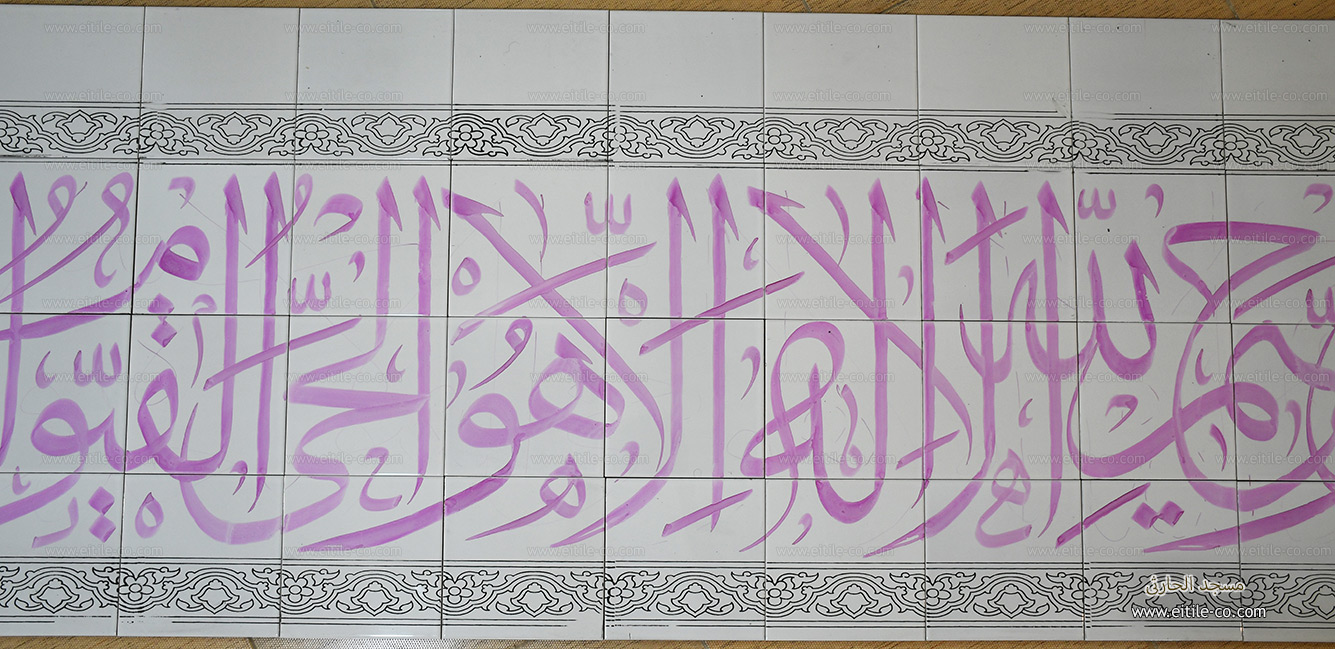 حيم اللّٰهُ لَا إِلَٰهَ إِلَّا هُوَ الْحَيُّ الْقَيُّومُ
مسجد الحارثی
www.eitile-co.com